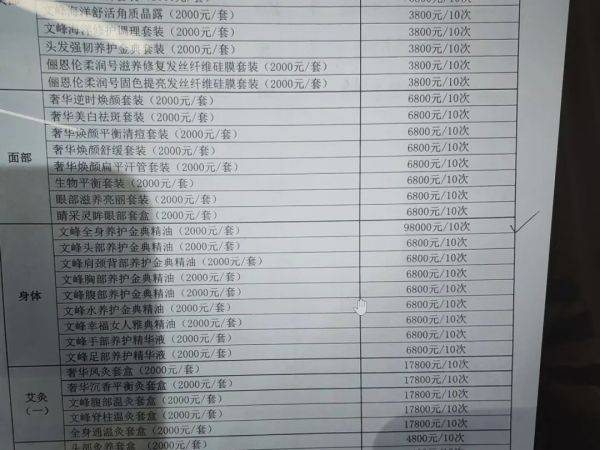 文峰海洋舒活角质晶露(2000元/套) 3800元/10次
文峰海洋修护调理套装(2000元/套) 3800元/10次
头发强韧养护金典套装(2000元/套) 3800元/10次
俪恩伦柔润号滋养修复发丝纤维硅膜套装(2000元/套) 3800元/10次
俪恩伦柔润号固色提亮发丝纤维硅膜套装(2000元/套) 3800元/10次
奢华逆时焕颜套装(2000元/套) 6800元/10次
奢华美白祛斑套装(2000元/套) 6800元/10次
奢华焕颜平衡清痘套装(2000元/套) 6800元/10次
奢华焕颜舒缓套装(2000元/套) 6800元/10次
面部 奢华焕颜扁平汗管套装(2000元/套) 6800元/10次
生物平衡套装(2000元/套) 6800元/10次
眼部滋养亮丽套装(2000元/套) 6800元/10次
睛采灵眸眼部套盒(2000元/套) 6800元/10次
文峰全身养护金典精油(2000元/套) 98000元/10次
文峰头部养护金典精油(2000元/套) 6800元/10次
文峰肩颈背部养护金典精油(2000元/套) 6800元/10次
文峰胸部养护金典精油(2000元/套) 6800元/10次
身体 文峰腹部养护金典精油(2000元/套) 6800元/10次
文峰水养护金典精油(2000元/套) 6800元/10次
文峰幸福女人雅典精油(2000元/套) 6800元/10次
文峰手部养护精华液(2000元/套) 6800元/10次
文峰足部养护精华液(2000元/套) 6800元/10次
奢华风灸套盒(2000元/套) 17800元/10次
奢华沉香平衡灸套盒(2000元/套) 17800元/10次
艾灸(一) 文峰腹部温灸套盒(2000元/套) 17800元/10次
文峰脊柱温灸套盒(2000元/套) 17800元/10次
全身通温灸套盒(2000元/套) 17800元/10次
头部灸养套盒(2000元/套) 4800元/10次